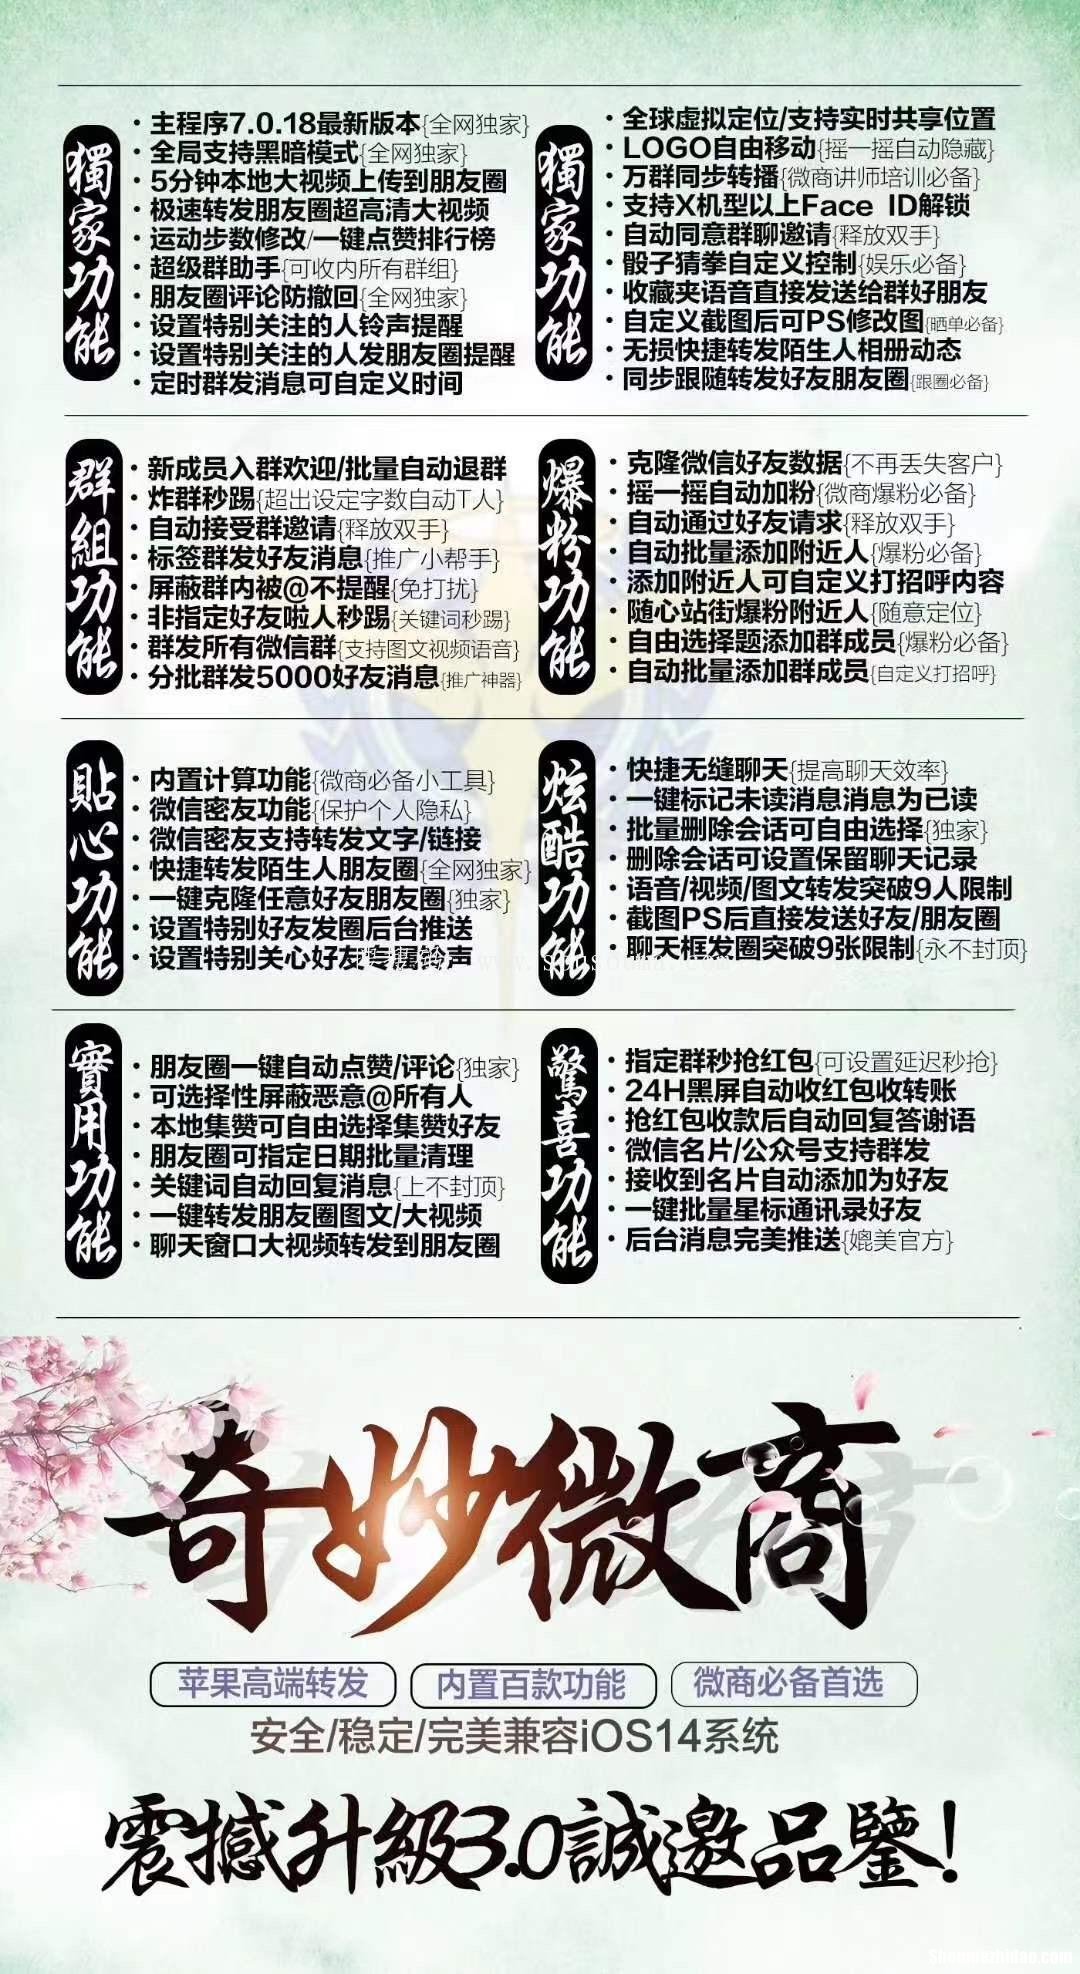 獨家功能
·主程序7.0.18最新版本{全网独家}
·全局支持黑暗模式{全网独家}
·5分钟本地大视频上传到朋友圈
·极速转发朋友圈超高清大视频
·运动步数修改/一键点赞排行榜
·超级群助手{可收内所有群组}
·朋友圈评论防撤回{全网独家}
·设置特别关注的人铃声提醒
·设置特别关注的人发朋友圈提醒
·定时群发消息可自定义时间
獨家功能
·全球虚拟定位/支持实时共享位置
·LOGO自由移动{摇一摇自动隐藏}
·万群同步转播{微商讲师培训必备}
·支持X机型以上Face ID解锁
·自动同意群聊邀请{释放双手}
·骰子猜拳自定义控制{娱乐必备}
·收藏夹语音直接发送给群好朋友
·自定义截图后可PS修改图{晒单必备}
·无损快捷转发陌生人相册动态
·同步跟随转发好友朋友圈{跟圈必备}
群組功能
·新成员入群欢迎/批量自动退群
·炸群秒踢{超出设定字数自动T人}
·自动接受群邀请{释放双手}
·标签群发好友消息{推广小帮手}
·屏蔽群内被@不提醒{免打扰}
·非指定好友啦人秒踢{关键词秒踢}
·群发所有微信群{支持图文视频语音}
·分批群发5000好友消息{推广神器}
爆粉功能
·克隆微信好友数据{不再丢失客户}
·摇一摇自动加粉{微商爆粉必备}
·自动通过好友请求{释放双手}
·自动批量添加附近人{爆粉必备}
·添加附近人可自定义打招呼内容
·随心站街爆粉附近人{随意定位}
·自由选择题添加群成员{爆粉必备}
·自动批量添加群成员{自定义打招呼}
貼心功能
·内置计算功能{微商必备小工具}
·微信密友功能{保护个人隐私}
·微信密友支持转发文字/链接
·快捷转发陌生人朋友圈{全网独家}
·一键克隆任意好友朋友圈{独家}
·设置特别好友发圈后台推送
·设置特别关心好友专属铃声
炫酷功能
·快捷无缝聊天{提高聊天效率}
·一键标记未读消息消息为已读
·批量删除会话可自由选择{独家}
·删除会话可设置保留聊天记录
·语音/视频/图文转发突破9人限制
·截图PS后直接发送好友/朋友圈
·聊天框发圈突破9张限制{永不封顶}
實用功能
·朋友圈一键自动点赞/评论{独家}
·可选择性屏蔽恶意@所有人
·本地集赞可自由选择集赞好友
·朋友圈可指定日期批量清理
·关键词自动回复消息{上不封顶}
·一键转发朋友圈图文/大视频
·聊天窗口大视频转发到朋友圈
驚喜功能
·指定群秒抢红包{可设置延迟秒抢}
·24H黑屏自动收红包收转账
·抢红包收款后自动回复答谢语
·微信名片/公众号支持群发
·接收到名片自动添加为好友
·一键批量星标通讯录好友
·后台消息完美推送{媲美官方}
奇妙微商
苹果高端转发 内置百款功能 微商必备首选
安全/稳定/完美兼容iOS14系统
震撼升級3.0誠邀品鑒!